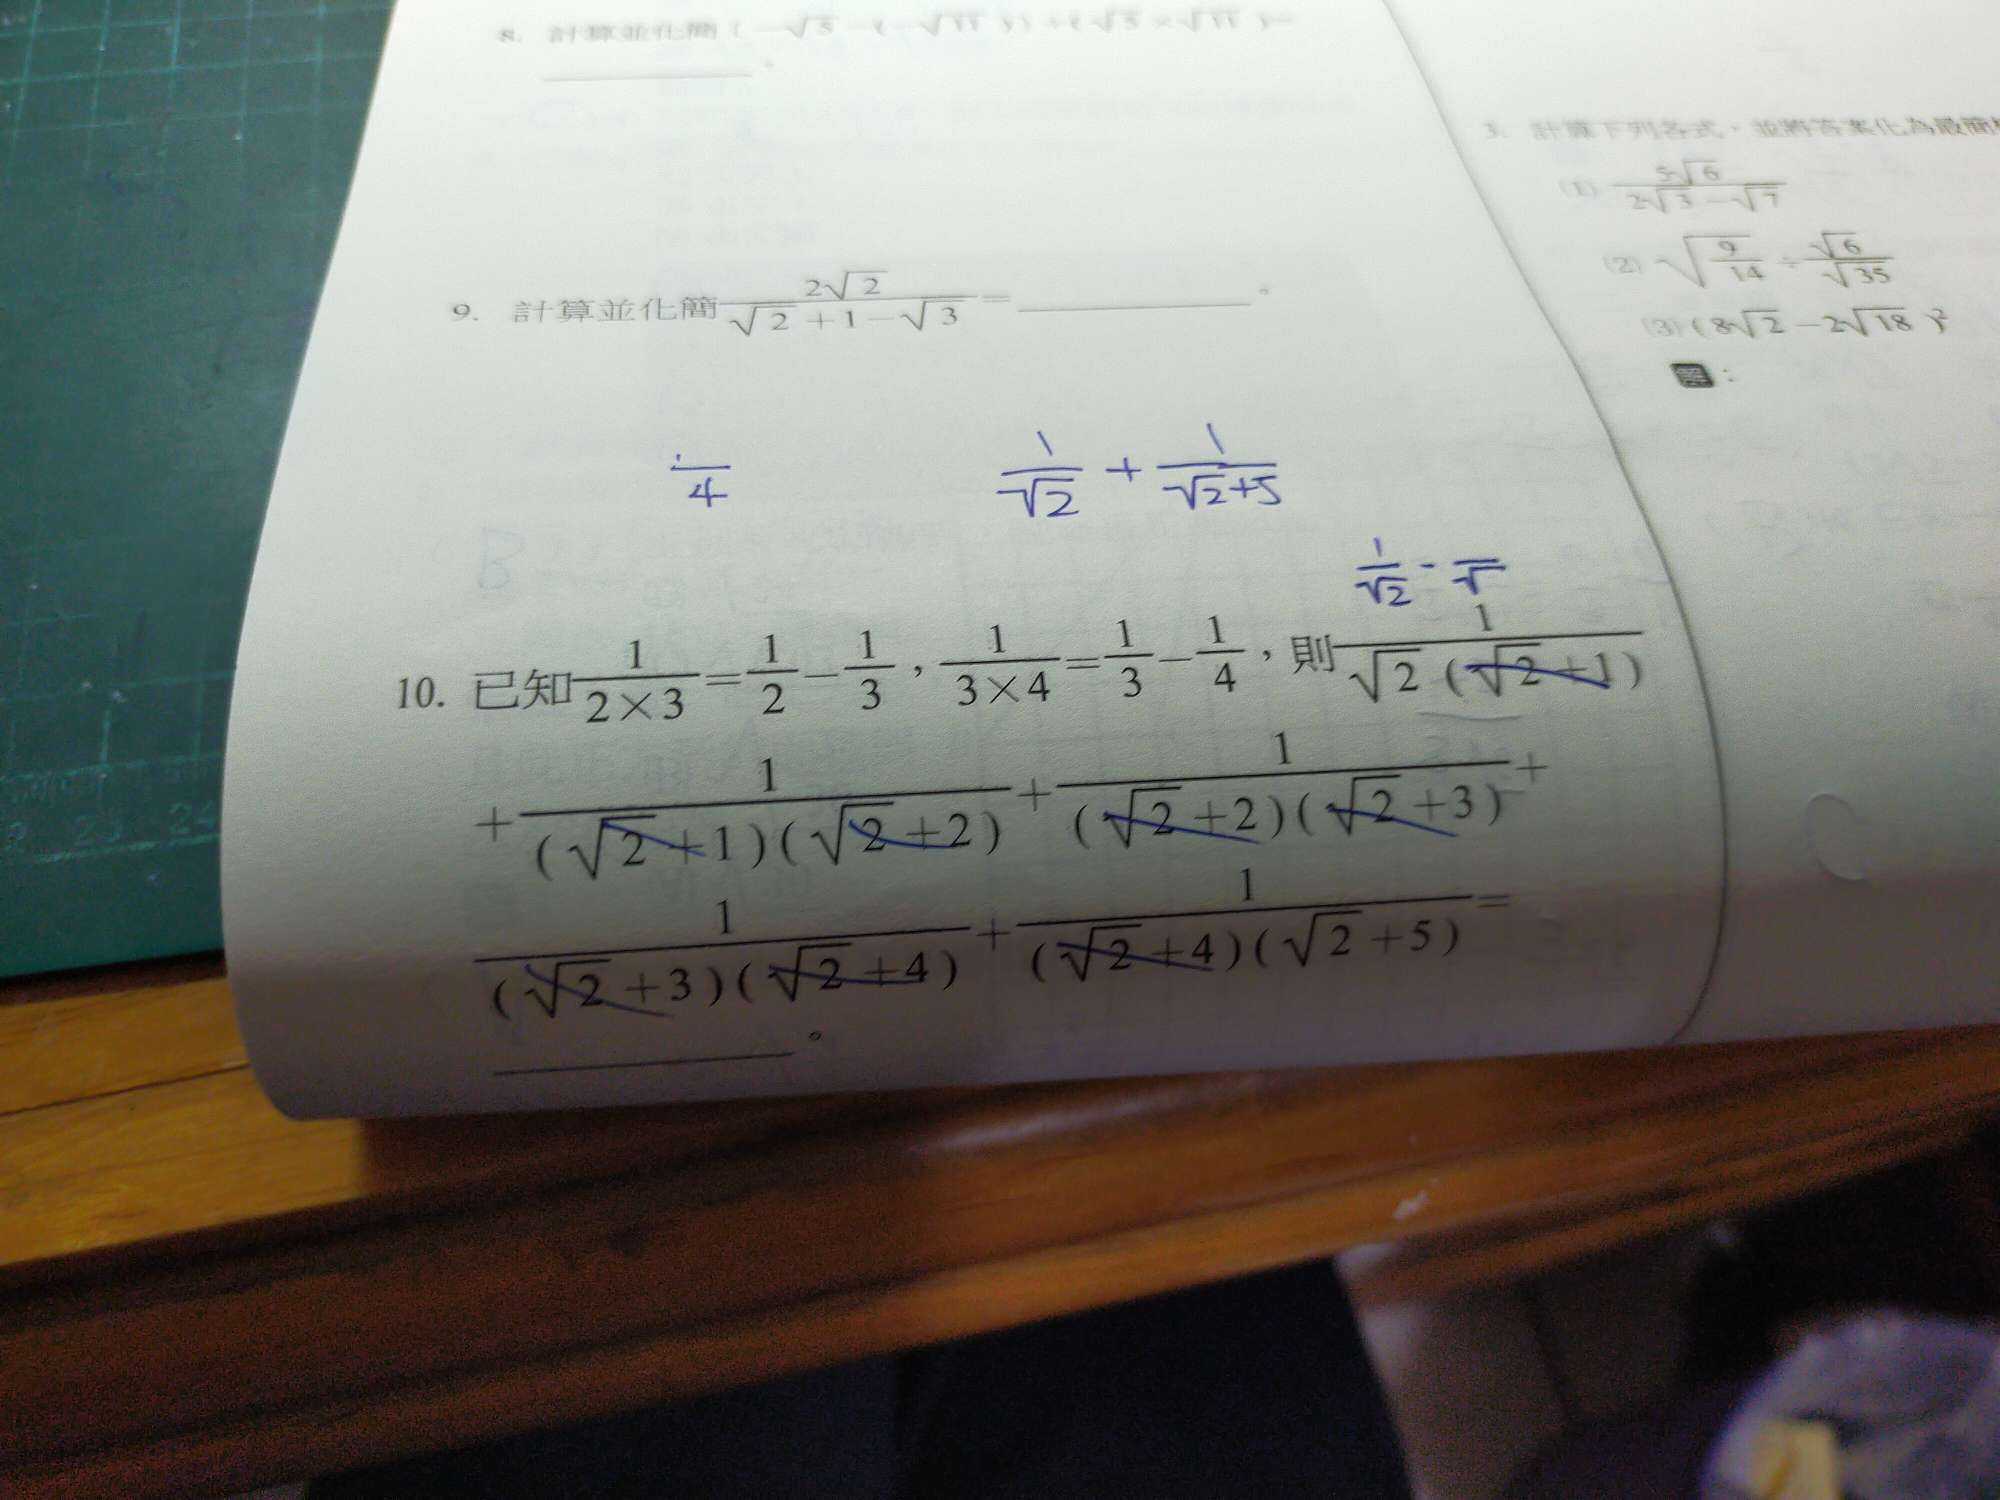 8. 計算並化簡 ( −√5 − ( −√11 ) ) + ( √5 × √11 ) =
________。
9. 計算並化簡 2√2/(√2+1−√3) = ________。
4
1/√2 + 1/(√2+5)
1/√2 - √
10. 已知 1/(2×3) = 1/2 − 1/3，1/(3×4) = 1/3 − 1/4，則 1/(√2(√2+1))
+ 1/((√2+1)(√2+2)) + 1/((√2+2)(√2+3)) +
1/((√2+3)(√2+4)) + 1/((√2+4)(√2+5)) =
________。
3. 計算下列各式，並將答案化為最簡
(1) 5√6/(2√3−√7)
(2) √(9/14) ÷ √6/√35
(3) (8√2−2√18)²
解：